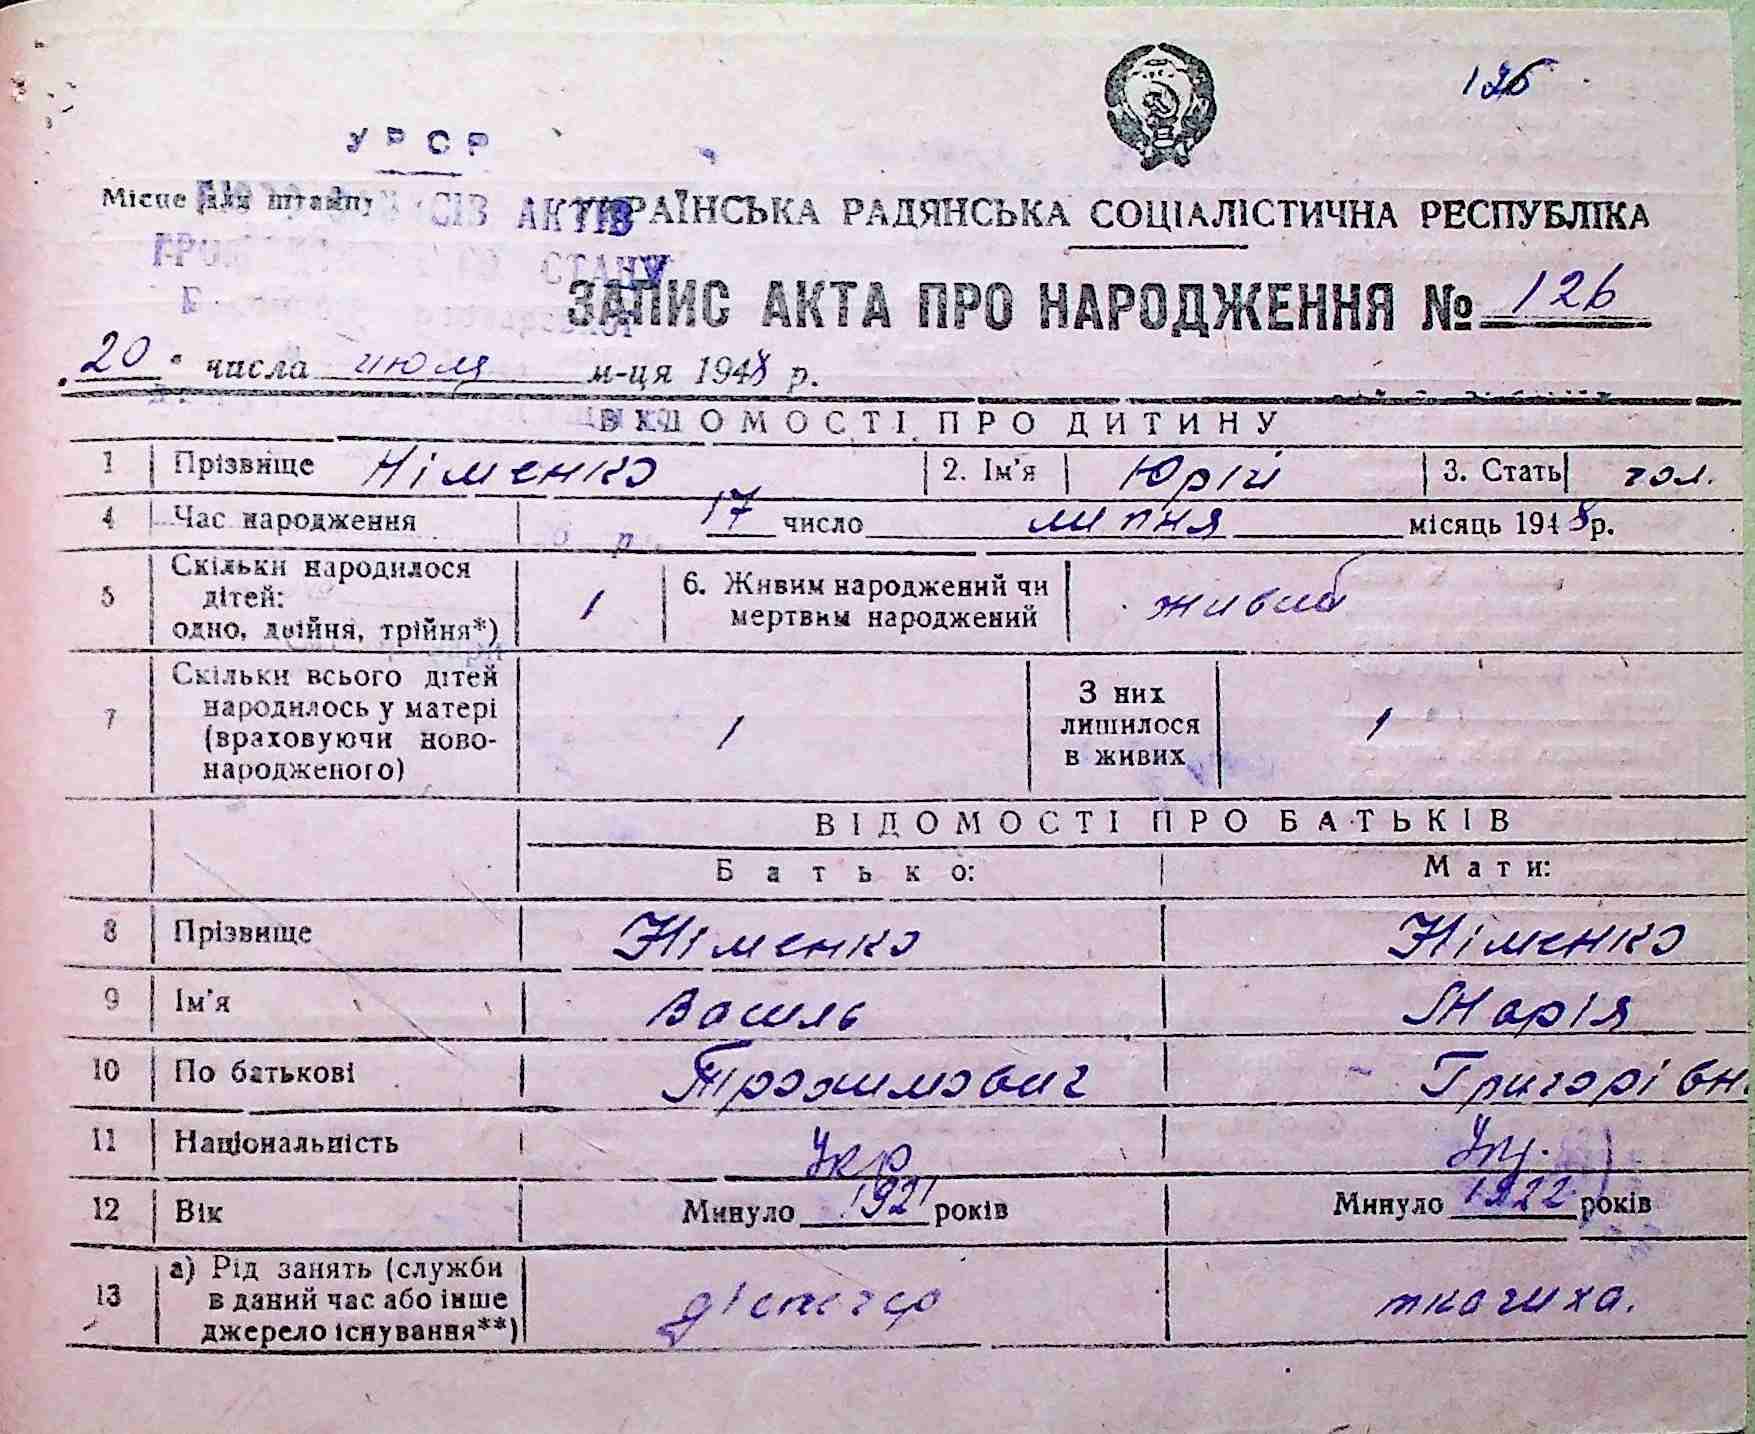 126
УРСР
Місце для штампу
СІВ АКТІВ
УКРАЇНСЬКА РАДЯНСЬКА СОЦІАЛІСТИЧНА РЕСПУБЛІКА
СТАНУ
ЗАПИС АКТА ПРО НАРОДЖЕННЯ № 126
20 числа июля м-ця 1948 р.
ВІДОМОСТІ ПРО ДИТИНУ
1 Прізвище Німенко 2. Ім'я Юрій 3. Стать чол.
4 Час народження 17 число липня місяць 1948 р.
5 Скільки народилося дітей: одно, двійня, трійня*) 1 6. Живим народжений чи мертвим народжений живий
7 Скільки всього дітей народилось у матері (враховуючи ново-народженого) 1 З них лишилося в живих 1
ВІДОМОСТІ ПРО БАТЬКІВ
Батько: Мати:
8 Прізвище Німенко Німенко
9 Ім'я Василь Марія
10 По батькові Трохимович Григорівн.
11 Національність Укр Укр.
12 Вік Минуло 1921 років Минуло 1922 років
13 а) Рід занять (служби в даний час або інше джерело існування**) ткачиха.